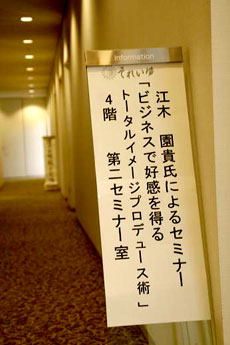 Information
それいゆ
江木 園貴氏によるセミナー
「ビジネスで好感を得る
トータルイメージプロデュース術」
4階 第二セミナー室